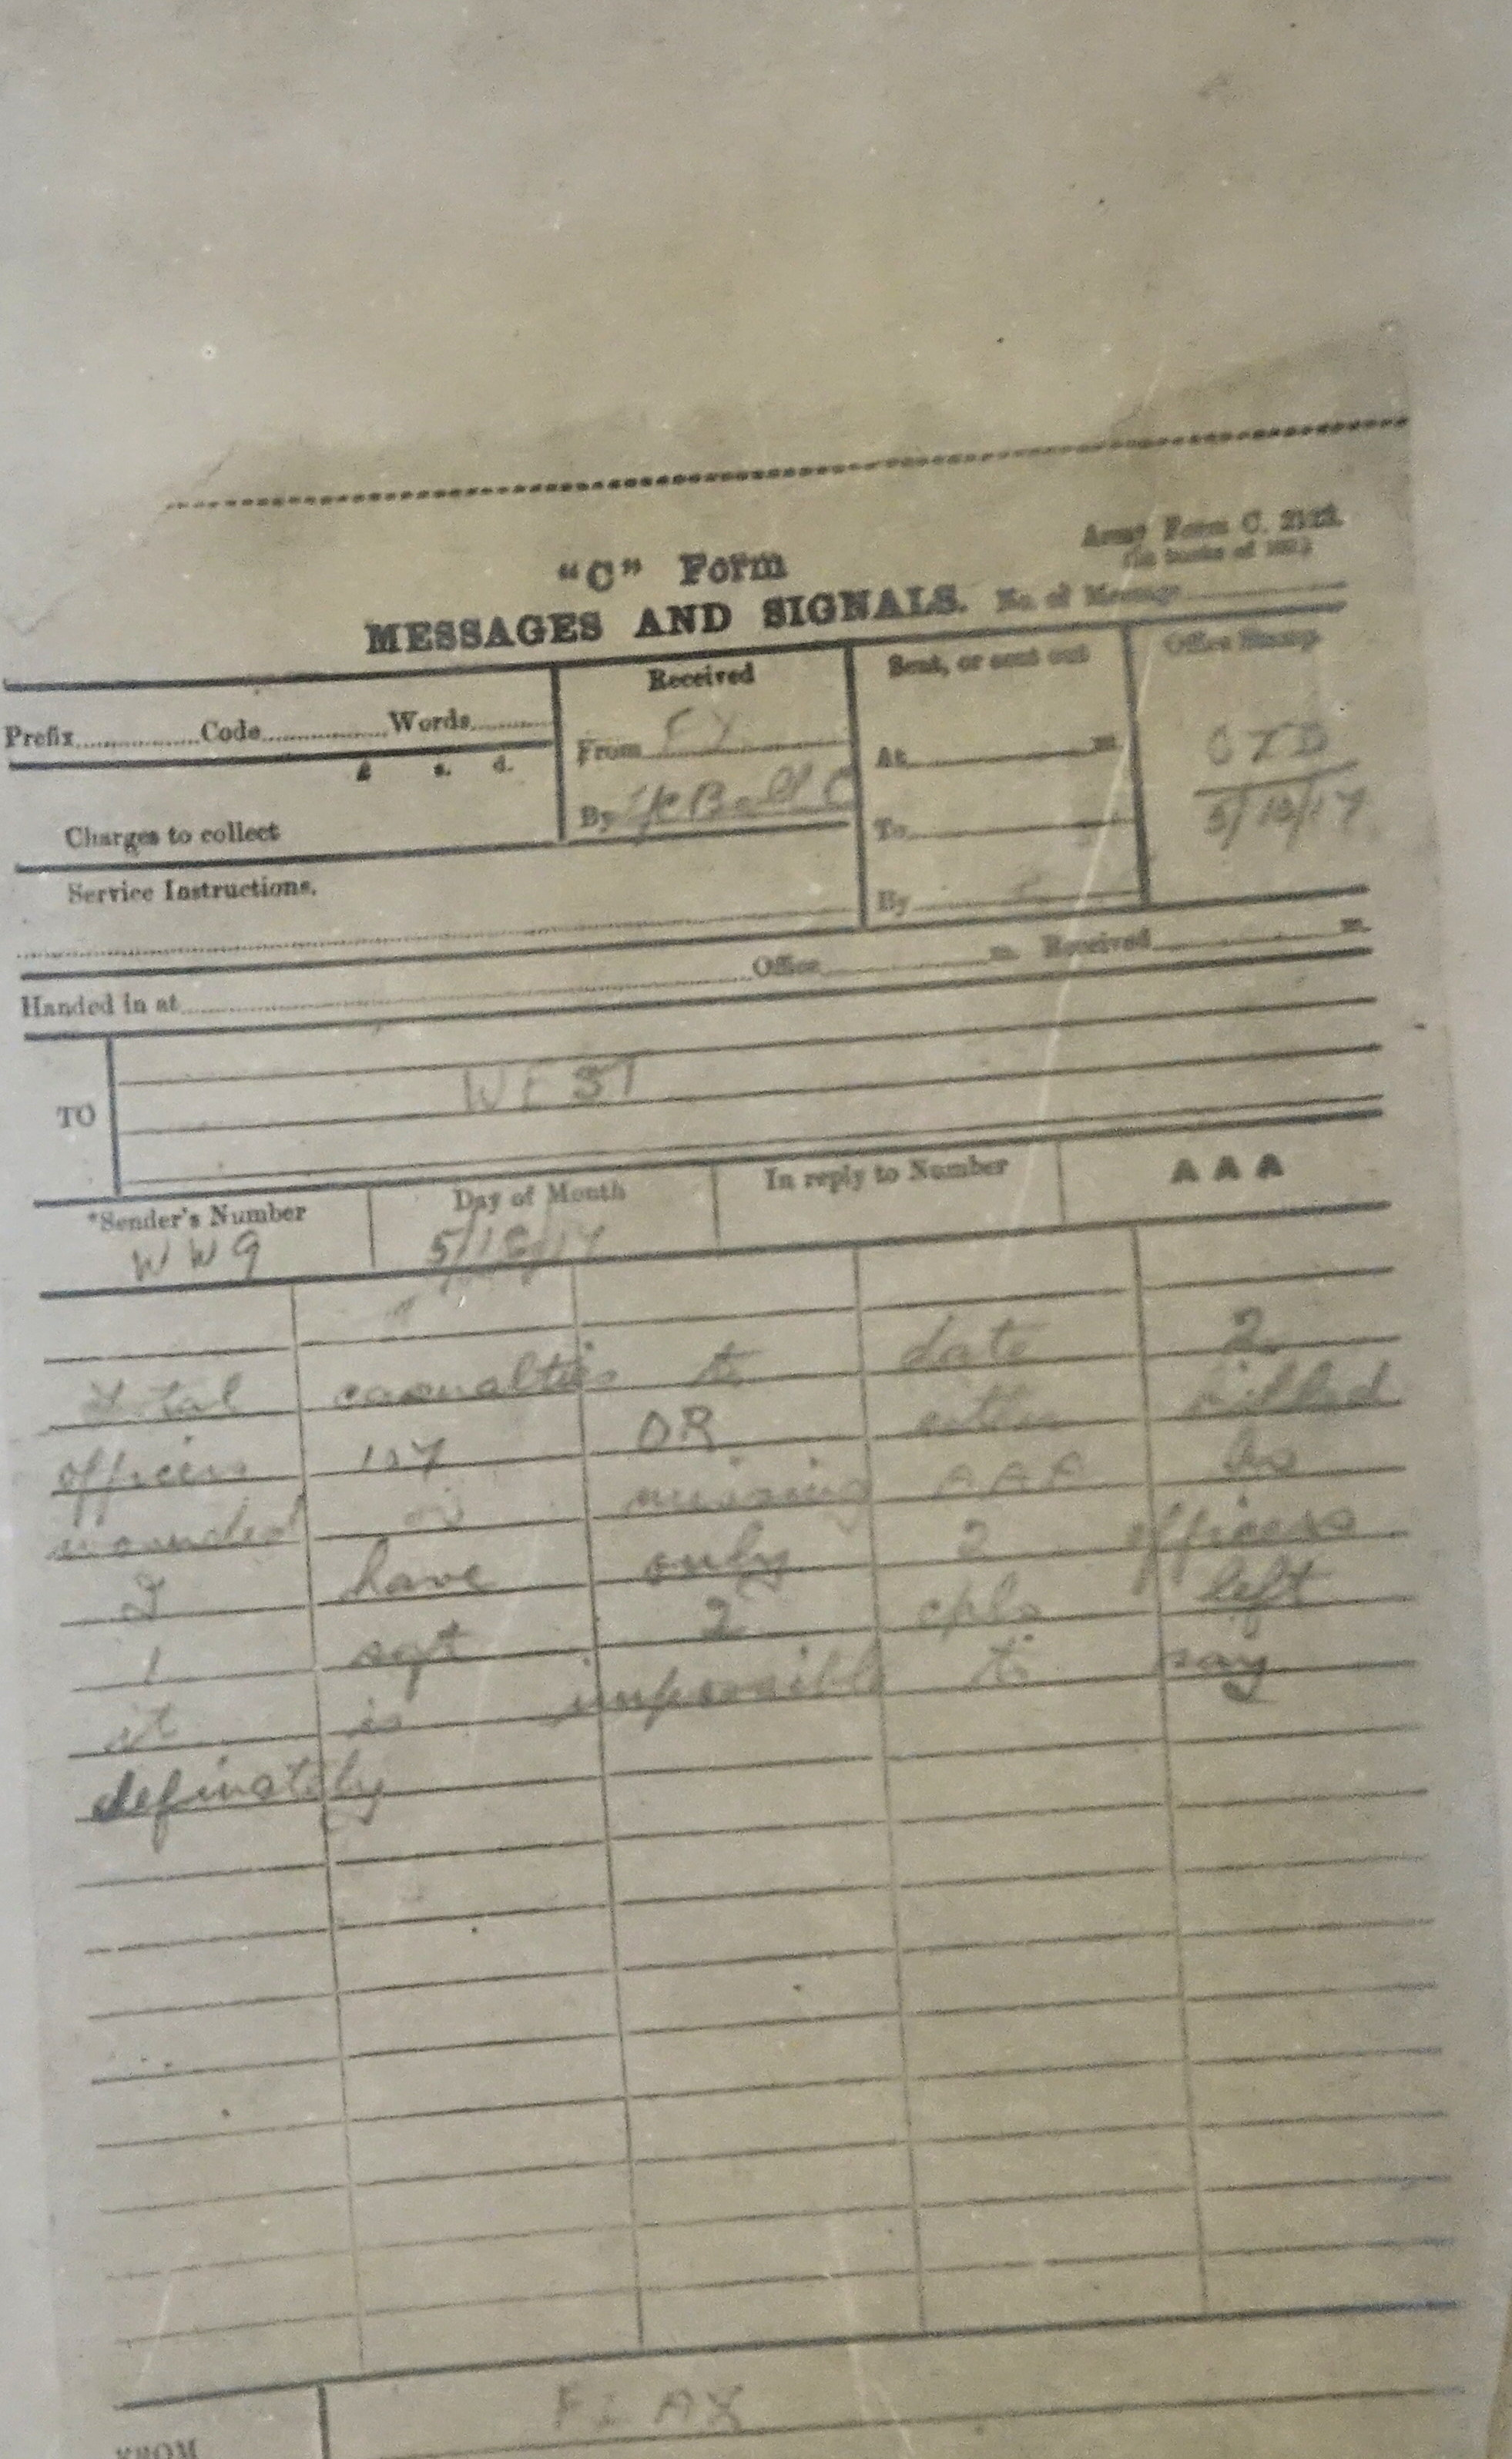 Army Form C. 2123.
"C" Form
MESSAGES AND SIGNALS. No. of Message
Prefix Code Words Received Sent, or sent out Office Stamp
£ s. d. From FY At m. CZB
Charges to collect By To 5/12/17
Service Instructions. By
Handed in at Office m. Received m.
TO WEST
*Sender's Number Day of Month In reply to Number AAA
WW9 5/12/17
Total casualties to date 2
officers 107 OR either killed
wounded or missing AAA As
I have only 2 officers
1 sgt 2 cpls left
it is impossible to say
definately
FROM FLAX